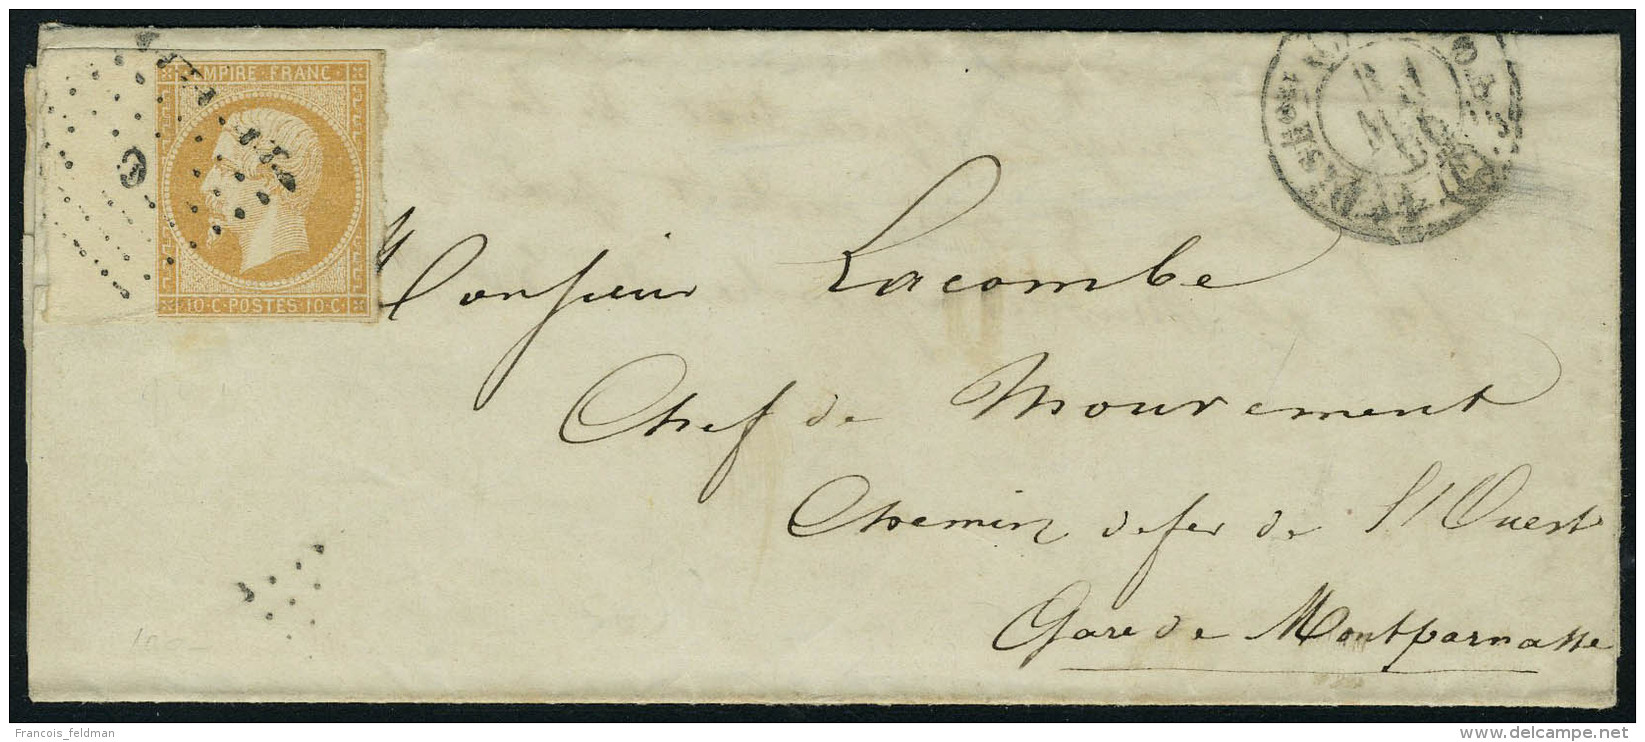 EMPIRE FRANC
10·C·POSTES·10·C·
Monsieur Lacombe
Chef de Mouvement
Chemin de fer de l'Ouest
Gare de Montparnasse
100-
Francois_feldman
www.delcampe.net